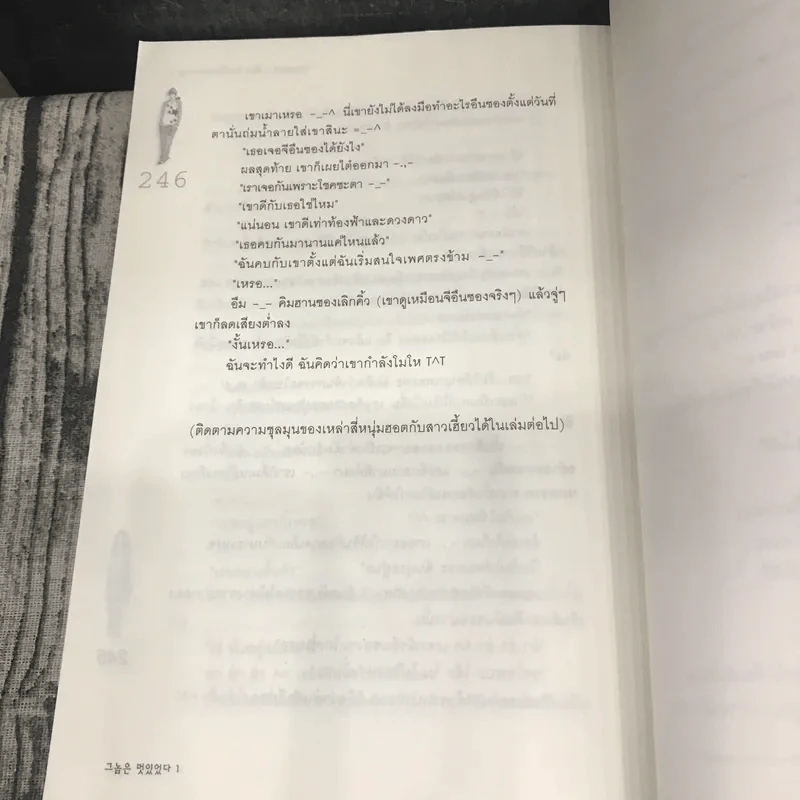 246
เขาเมาเหรอ -_-^ นี่เขายังไม่ได้ลงมือทำอะไรอึนซองตั้งแต่วันที่
ตานั่นถ่มน้ำลายใส่เขาสินะ =_-^
"เธอเจอจีอึนซองได้ยังไง"
ผลสุดท้าย เขาก็เผยไต๋ออกมา -.,-
"เราเจอกันเพราะโชคชะตา -_-"
"เขาดีกับเธอใช่ไหม"
"แน่นอน เขาดีเท่าท้องฟ้าและดวงดาว"
"เธอคบกันมานานแค่ไหนแล้ว"
"ฉันคบกับเขาตั้งแต่ฉันเริ่มสนใจเพศตรงข้าม -_-"
"เหรอ..."
อืม -_- คิมฮานซองเลิกคิ้ว (เขาดูเหมือนจีอึนซองจริงๆ) แล้วจู่ๆ
เขาก็ลดเสียงต่ำลง
"งั้นเหรอ..."
ฉันจะทำไงดี ฉันคิดว่าเขากำลังโมโห T^T
(ติดตามความชุลมุนของเหล่าสี่หนุ่มฮอตกับสาวเฮี้ยวได้ในเล่มต่อไป)
그놈은 멋있었다 1